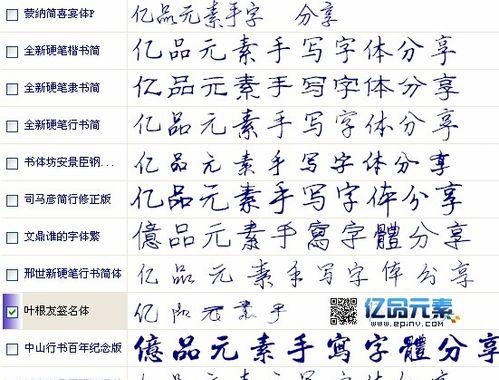 蒙纳简喜宴体P 亿品元素手字 分享
全新硬笔楷书简 亿品元素手写字体分享
全新硬笔隶书简 亿品元素手写字体分享
全新硬笔行书简 亿品元素手写字体分享
书体坊安景臣钢... 亿品元素手写字体分享
司马彦简行修正版 亿品元素手写字体分享
文鼎谁的字体繁 億品元素手寫字體分享
邢世新硬笔行书简体 亿品元素手写字体分享
叶根友签名体 亿品元素手 亿品元素
www.epinv.com
中山行书百年纪念版 億品元素手寫字體分享